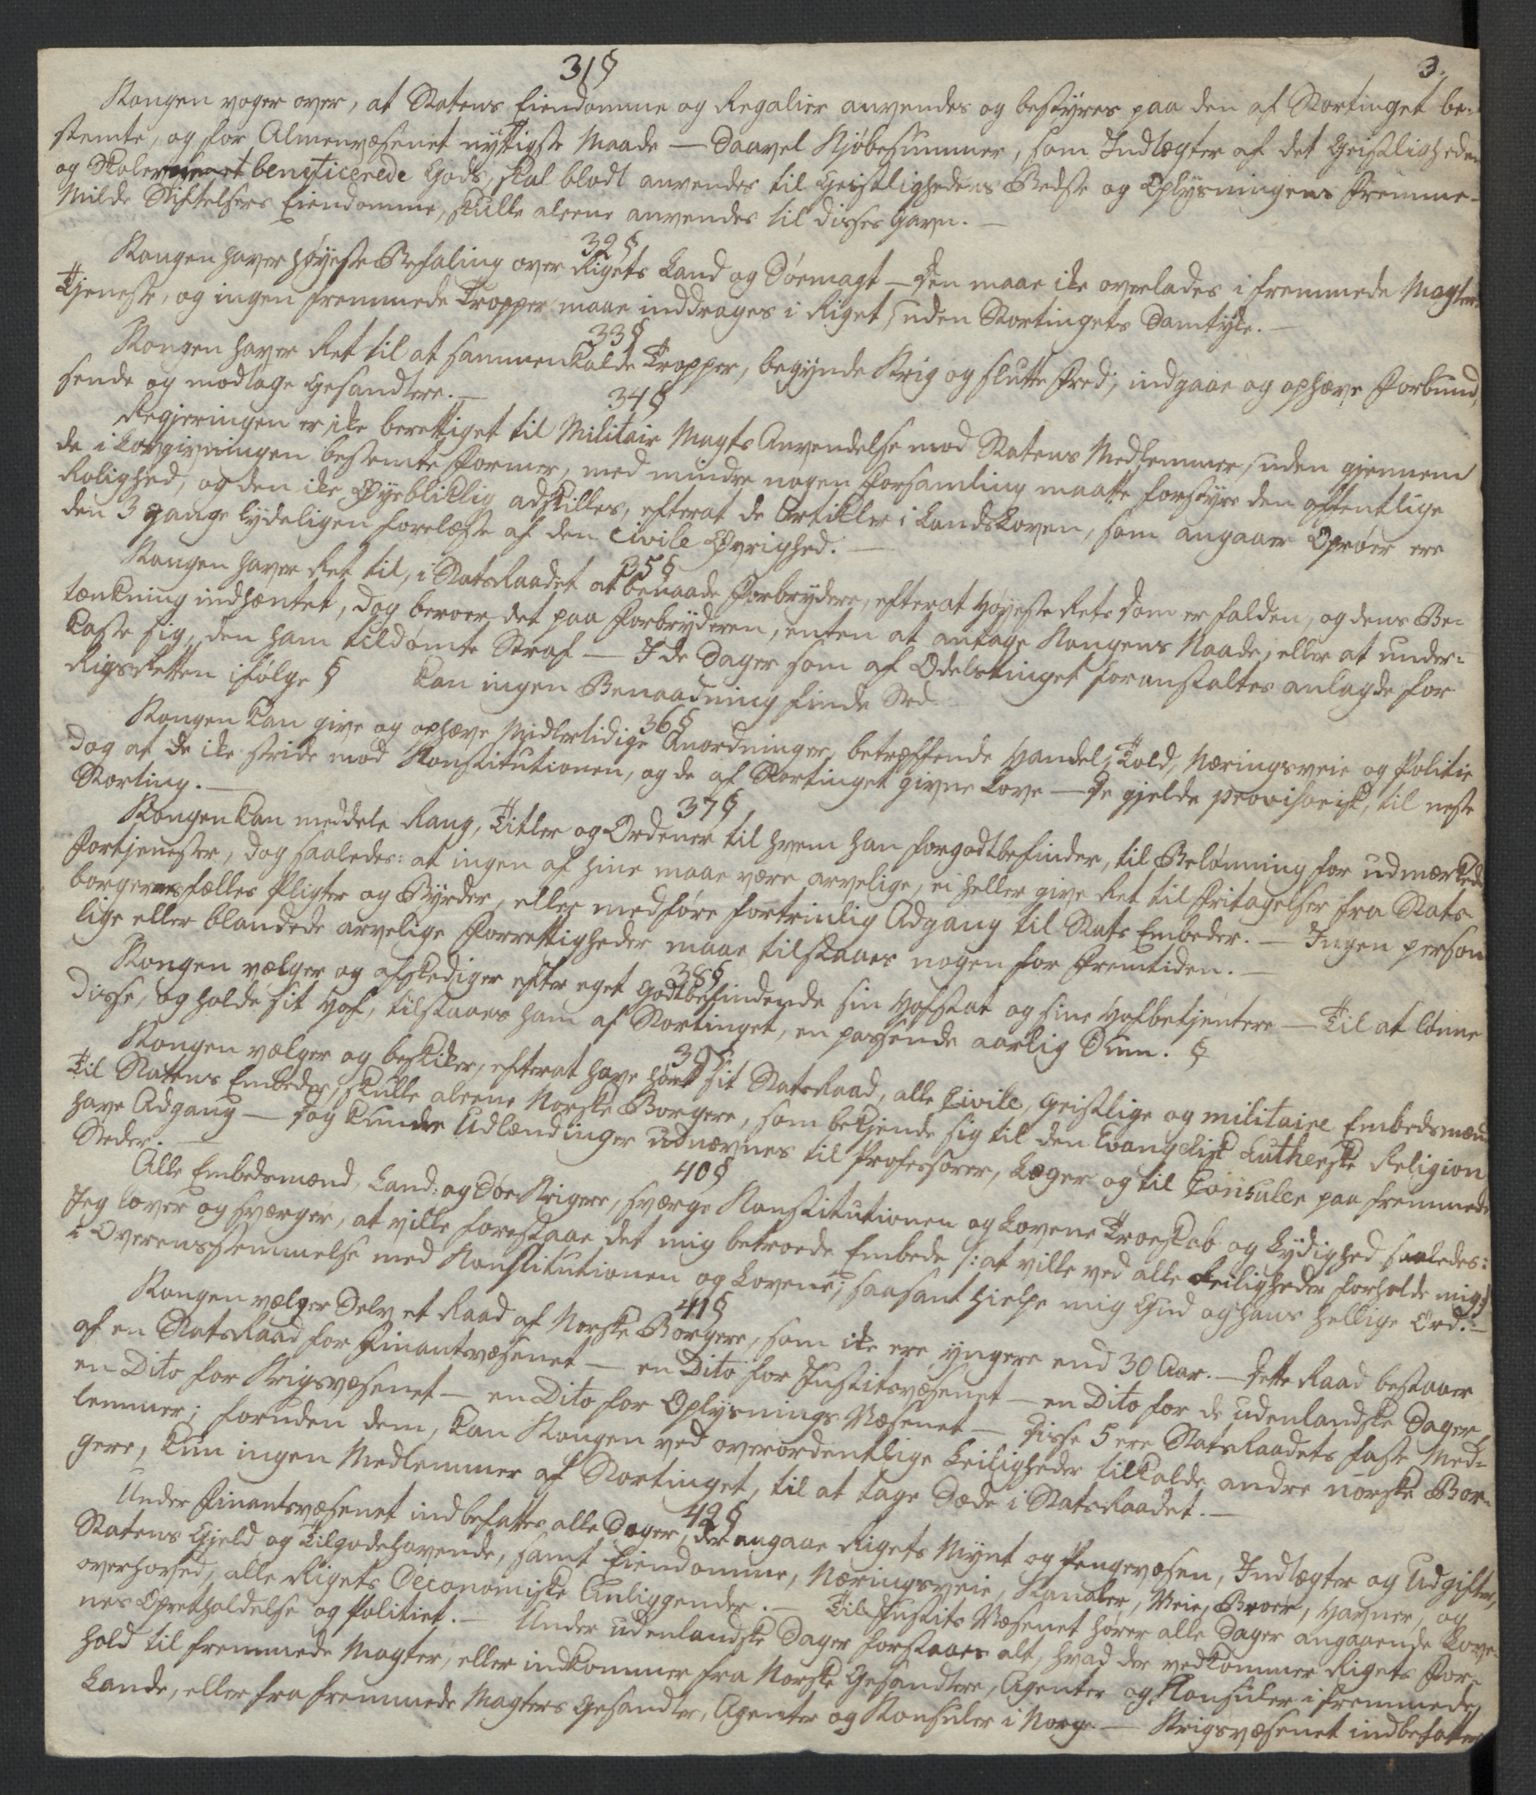 31 §
3.
Kongen vager over, at Statens Eiendomme og Regalier anvendes og bestyres paa den af Stortinget be-
stemte, og for Almenvæsenet nyttigste Maade — Saavel Kjöbesummer, som Indtægter af det Geistligheden
og Skolevæsenet beneficerede Gods, skal blodt anvendes til Geistlighedens Bedste og Oplysningens Fremme –
Milde Stiftelsers Eiendomme, skulle aleene anvendes til disses Gavn. —
32 §
Kongen haver höyeste Befaling over Rigets Land og Söemagt — Den maae ike overlades i fremmede Magters
Tjeneste, og ingen fremmede Tropper maae inddrages i Riget, uden Stortingets Samtyke. —
33 §
Kongen haver Ret til at sammenkalde Tropper, begynde Krig og slutte Fred, indgaae og ophæve Forbund,
sende og modtage Gesandtere. —
34 §
Regjeringen er ike berettiget til Militair Magts Anvendelse mod Statens Medlemmer, uden gjennem
de i Lovgivningen bestemte Former, med mindre nogen Forsamling maatte forstyre den offentlige
Rolighed, og den ike Öyebliklig adskilles, efterat de Artikler i Landsloven, som angaaer Oprör ere
den 3 gange lydeligen forelæste af den Civile Övrighed. —
35 §
Kongen haver Ret til, i StatsRaadet at benaade Forbrydere, efterat HöyesteRets Dom er falden, og dens Be-
tænkning indhæntet, dog beroer det paa Forbryderen, enten at antage Kongens Naade, eller at under-
kaste sig, den ham tildömte Straf — I de Sager som af Odelstinget foranstaltes anlagde for
Rigsretten ifölge § kan ingen Benaadning finde Sted.
36 §
Kongen kan give og ophæve Midlertidige Anordninger, betræffende Handel, Told, Næringsveie og Politie
dog at de ike stride mod Konstitutionen, og de af Stortinget givne Love — De gjelde provisorisk, til neste
Storting. —
37 §
Kongen kan meddele Rang, Titler og Ordener til hvem han forgodtbefinder, til Belönning for udmærkede
Fortjenester, dog saaledes: at ingen af hine maae være arvelige, ei heller give Ret til Fritagelser fra Stats
borgernes fælles Pligter og Byrder, eller medföre fortrinlig Adgang til Stats Embeder. — Ingen person
lige eller blandede arvelige Forrettigheder maae tilstaaes nogen for Fremtiden. —
38 §
Kongen vælger og afskediger efter eget Godtbefindende sin Hofstat og sine Hofbetjentere — Til at lönne
disse, og holde sit Hof, tilstaaes ham af Stortinget, en passende aarlig Sum. §
39 §
Kongen vælger og beskiker, efterat have hört sit StatsRaad, alle Civile, Geistlige og militaire Embedsmænd
Til Statens Embeder, skulle aleene Norske Borgere, som bekjende sig til den Evangelisk Lutherske Religion
have Adgang — dog kunde Udlændinger udnævnes til Professorer, Læger og til Consuler paa fremmede
Steder. —
40 §
Alle Embedsmænd, Land- og Söe Krigere, sværge Konstitutionen og Lovene Troeskab og Lydighed saaledes:
Jeg lover og sværger, at ville forestaae det mig betroede Embede /: at ville ved alle Leiligheder forholde mig :/
i Overensstemmelse med Konstitutionen og Lovene; saasant hielpe mig Gud og hans hellige Ord. —
41 §
Kongen vælger Selv et Raad af Norske Borgere, som ike ere yngere end 30 Aar. — Dette Raad bestaaer
af en StatsRaad for Finantsvæsenet — en Dito for Justitsvæsenet — en Dito for de udenlandske Sager
en Dito for Krigsvæsenet — en Dito for Oplysnings Væsenet — Disse 5 ere StatsRaadets faste Med-
lemmer; foruden dem, kan Kongen ved overordentlige Leiligheder tilkalde andre norske Bor-
gere, kun ingen Medlemmer af Stortinget, til at tage Sæde i StatsRaadet. —
42 §
Under Finantsvæsenet indbefattes alle Sager, der angaae Rigets Mynt og Pengevæsen, Indtægter og Udgifter,
Statens Gjeld og Tilgodehavende, samt Eiendomme, Næringsveie, Kanaler, Veie, Broer, Havner, og
overhoved, alle Rigets Oeconomiske Anliggender. — Til Justits Væsenet hörer alle Sager angaaende Love-
nes Opretholdelse og Politiet. — Under udenlandske Sager forstaaes alt, hvad der vedkommer Rigets For-
hold til fremmede Magter, eller indkommer fra Norske Gesandtere, Agenter og Konsuler i fremmede
Lande, eller fra fremmede Magters Gesandter, Agenter og Konsuler i Norge — Krigsvæsenet indbefatter